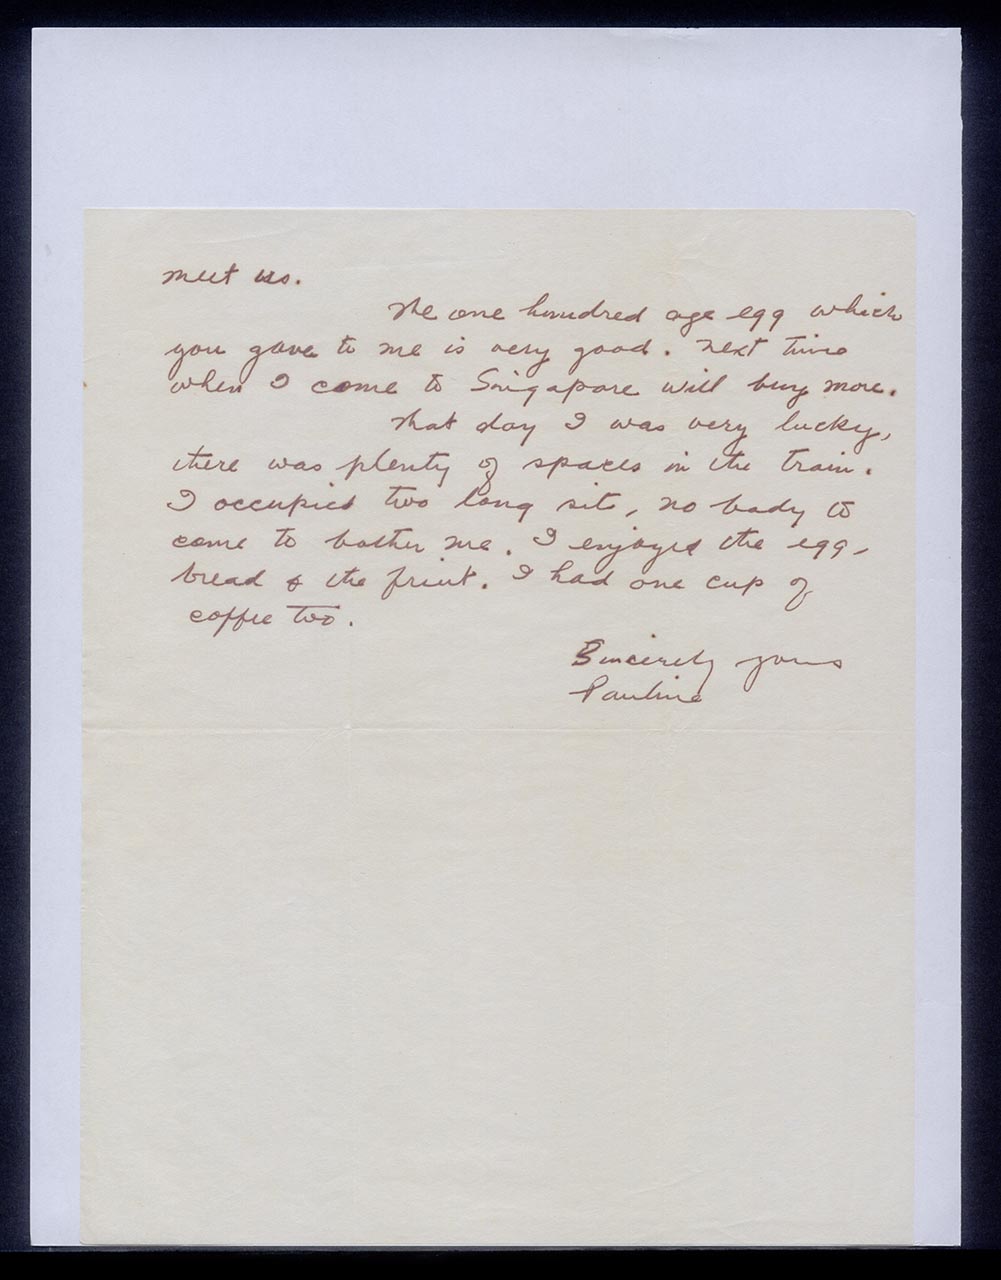 meet us.
The one hundred age egg which
you gave to me is very good. Next time
when I come to Singapore will buy more.
That day I was very lucky,
there was plenty of spaces in the train.
I occupied two long sits, no body to
come to bother me. I enjoyed the egg,
bread & the fruit. I had one cup of
coffee too.
Sincerely yours
Pauline